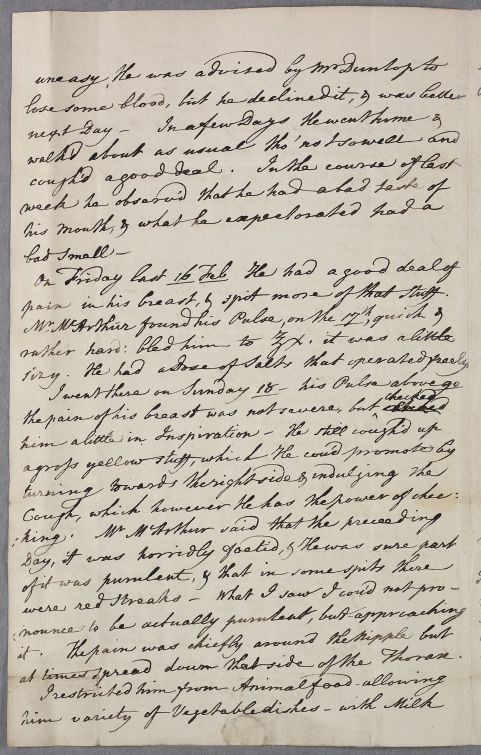 uneasy, He was advised by Mr Dunlop to
lose some blood, but he declined it, & was better
next Day — In a few Days He went home &
walk'd about as usual tho' not so well and
cough'd a good deal. In the course of last
week he observ'd that he had a bad taste of
his mouth, & what he expectorated had a
bad smell —
On Friday last 16 Feb He had a good deal of
pain in his breast, & spit more of that stuff.
Mr. McArthur found his Pulse, on the 17th, quick &
rather hard: bled him to ℥x. it was a little
sizy. He had a dose of Salts that operated freely
I went there on Sunday 18 — his Pulse above 90
the pain of his breast was not severe, but checked
him a little in Inspiration — He still cough'd up
a gross yellow stuff, which He cou'd promote by
turning towards the right side & indulging the
Cough, which however He has the power of chec:
:king. Mr McArthur said that the preceeding
Day, it was horridly foetid, & He was sure part
of it was purulent, & that in some spits there
were red streaks — What I saw I cou'd not pro-
:nounce to be actually purulent, but approaching
it. The pain was chiefly around the Nipple but
at times spread down that side of the Thorax.
I restricted him from Animal food allowing
him variety of Vegetable dishes — with Milk